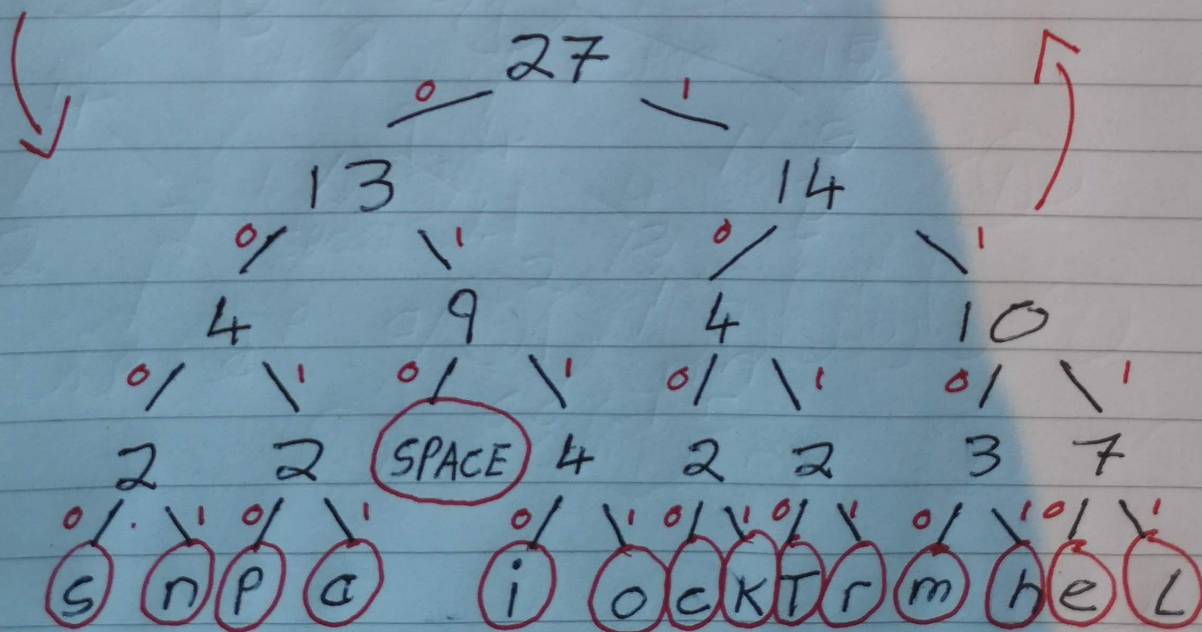 27
0 1
13 14
0 1 0 1
4 9 4 10
0 1 0 1 0 1 0 1
2 2 SPACE 4 2 2 3 7
0 1 0 1 0 1 0 1 0 1 0 1 0 1
s n p a i o c K T r m h e L